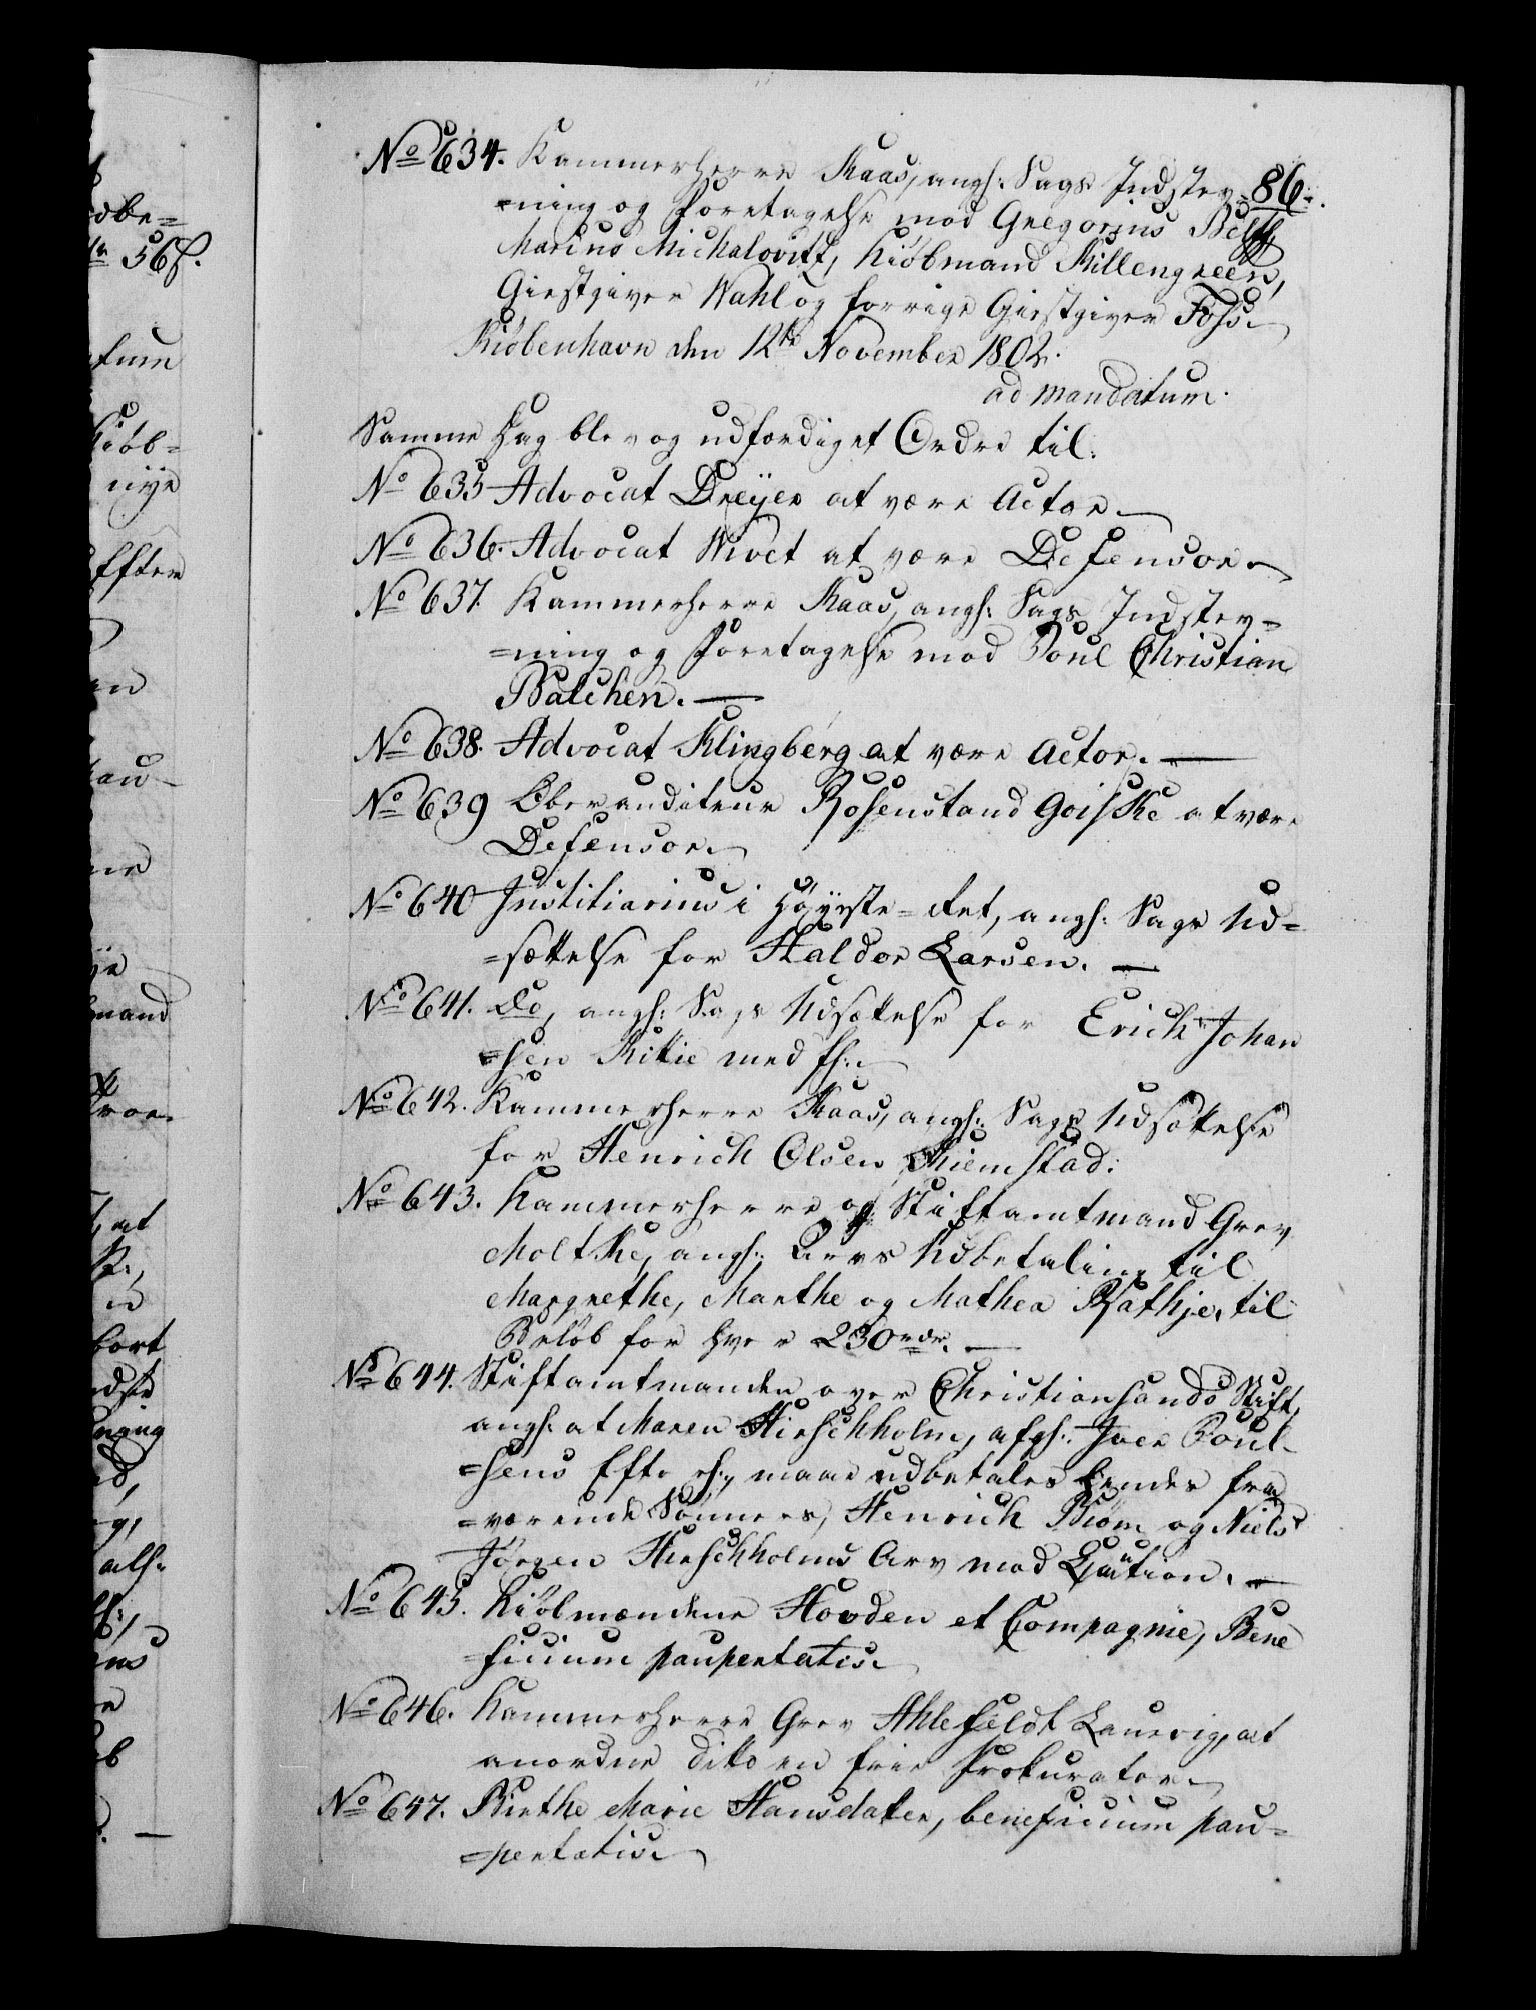 86.
No 634. Kammerherre Kaas, angh: Sags Indstev-
=ning og Foretagelse mod Gregorius
Marius Michalovitz, Kiöbmand Killengreen,
Giestgiver Wahl og forrige Giestgiver Foss.
Kiöbenhavn den 12te November 1802.
ad mandatum.
Samme Dag blev og udfærdiget Ordre til:
No 635 Advocat Dreyer at være Actor.
No 636. Advocat Wivet at være Defensor.
No 637. Kammerherre Kaas, angh: Sags Indstev-
=ning og Foretagelse mod Poul Christian
Balchen.
No 638. Advocat Klingberg at være Actor.
No 639 Oberauditeur Rosenstand Goiske at være
Defensor.
No 640 Justitiarius i Höyeste-Ret, angh: Sags Ud=
=sættelse for Haldor Larsen.
No 641. Do, angh: Sags Udsættelse for Erich Johan
=sen Kitie med fl:
No 642. Kammerherre Kaas, angh: Sags Udsættelse
for Henrich Olsen Kiemstad.
No 643. Kammerherre og Stiftamtmand Grev
Moltke, angh: Arvs Udbetaling til
Margrethe, Marthe og Mathea Rathje, til
Belöb for hver 230 rdr.
No 644. Stiftamtmanden over Christiansands Stift,
angh: at Maren Hirschholm, afgh: Iver Poul-
=sens Efterh:, maae udbetales hendes fra
=værende Sönners, Henrich Biöm og Niels
Jörgen Hirschholms Arv mod Caution.
No 645. Kiöbmændene Hovden et Compagnie, Bene
=ficium paupertatis.
No 646. Kammerherre Grev Ahlefeldt Laurvig, at
anordne ditto en frie Prokurator.
No 647. Birthe Marie Hansdatter, beneficium pau=
=pertatis.